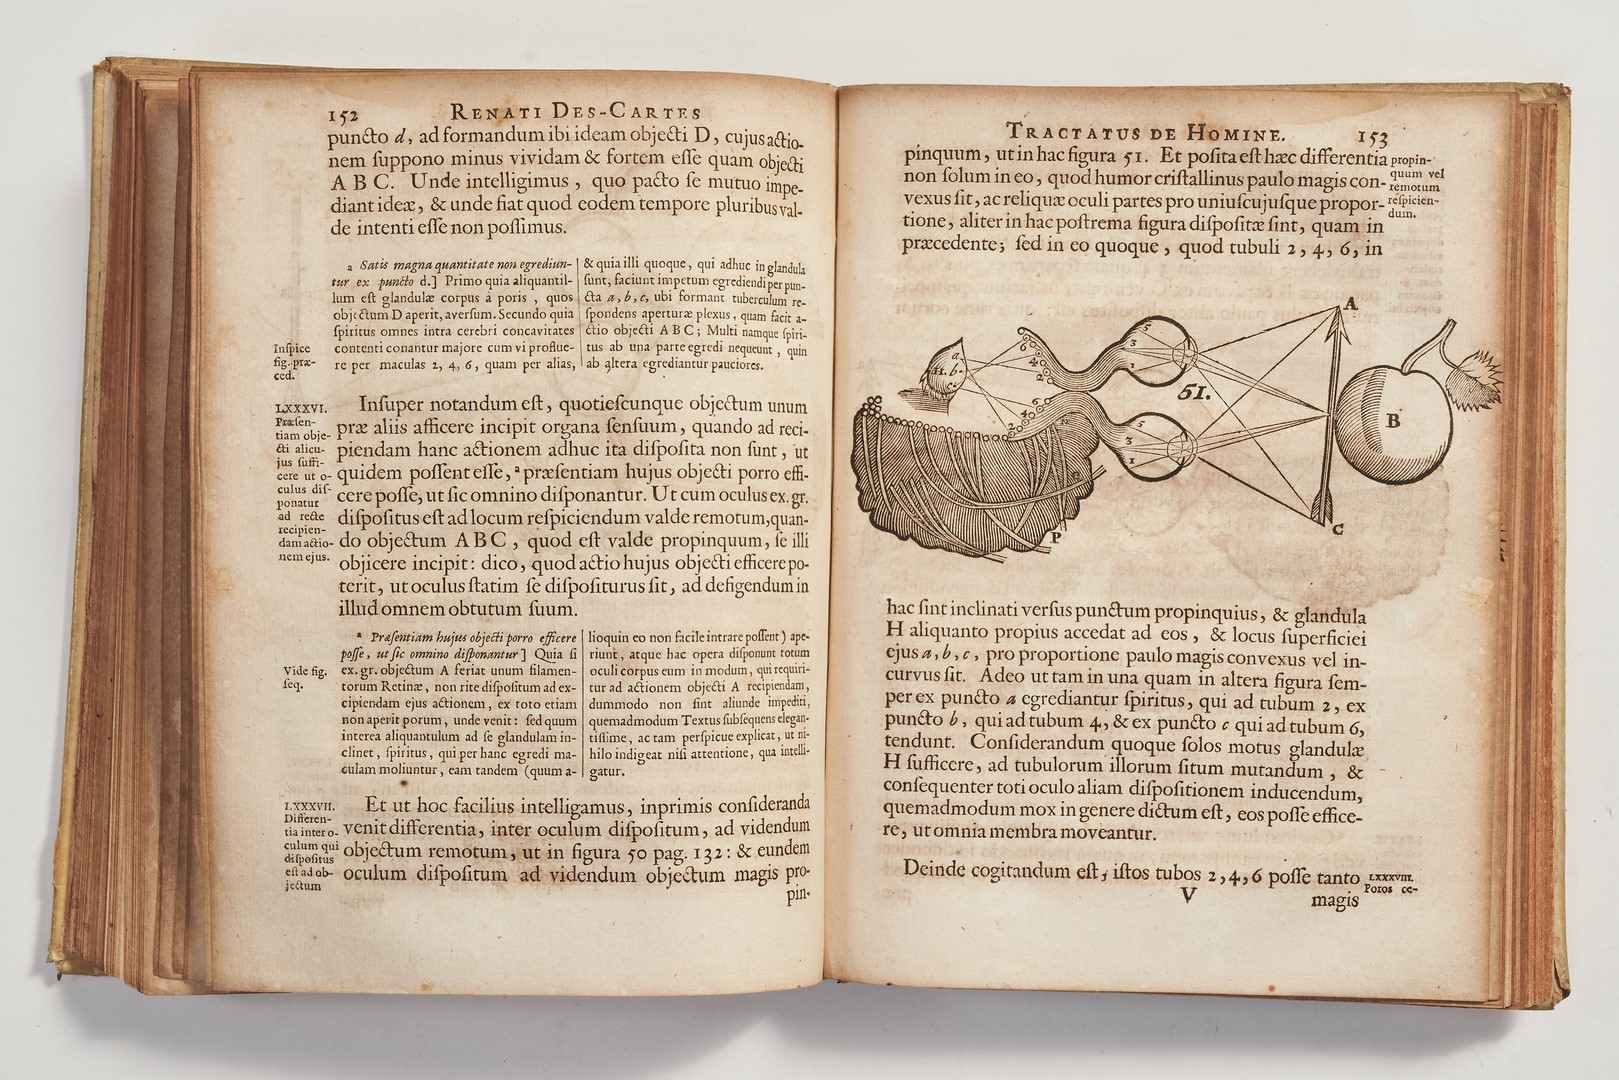 152 RENATI DES-CARTES
puncto d, ad formandum ibi ideam objecti D, cujus actio-
nem ſuppono minus vividam & fortem eſſe quam objecti
A B C. Unde intelligimus, quo pacto ſe mutuo impe-
diant ideæ, & unde fiat quod eodem tempore pluribus val-
de intenti eſſe non poſſimus.
a Satis magna quantitate non egrediun-
tur ex puncto d.] Primo quia aliquantil-
lum eſt glandulæ corpus à poris, quos
objectum D aperit, averſum. Secundo quia
ſpiritus omnes intra cerebri concavitates
contenti conantur majore cum vi proflue-
re per maculas 2, 4, 6, quam per alias,
Inſpice
fig. præ-
ced.
& quia illi quoque, qui adhuc in glandula
ſunt, faciunt impetum egrediendi per pun-
cta a, b, c, ubi formant tuberculum re-
ſpondens aperturæ plexus, quam facit a-
ctio objecti A B C; Multi namque ſpiri-
tus ab una parte egredi nequeunt, quin
ab altera egrediantur pauciores.
LXXXVI.
Præſen-
tiam obje-
cti alicu-
jus ſuffi-
cere ut o-
culus diſ-
ponatur
ad recte
recipien-
dam actio-
nem ejus.
Inſuper notandum eſt, quotieſcunque objectum unum
præ aliis afficere incipit organa ſenſuum, quando ad reci-
piendam hanc actionem adhuc ita diſpoſita non ſunt, ut
quidem poſſent eſſe, a præſentiam hujus objecti porro effi-
cere poſſe, ut ſic omnino diſponantur. Ut cum oculus ex. gr.
diſpoſitus eſt ad locum reſpiciendum valde remotum, quan-
do objectum A B C, quod eſt valde propinquum, ſe illi
objicere incipit: dico, quod actio hujus objecti efficere po-
terit, ut oculus ſtatim ſe diſpoſiturus ſit, ad defigendum in
illud omnem obtutum ſuum.
a Præſentiam hujus objecti porro efficere
poſſe, ut ſic omnino diſponantur] Quia ſi
ex. gr. objectum A feriat unum filamen-
torum Retinæ, non rite diſpoſitum ad ex-
cipiendam ejus actionem, ex toto etiam
non aperit porum, unde venit: ſed quum
interea aliquantulum ad ſe glandulam in-
clinet, ſpiritus, qui per hanc egredi ma-
culam moliuntur, eam tandem (quum a-
Vide fig.
ſeq.
lioquin eo non facile intrare poſſent) ape-
riunt, atque hac opera diſponunt totum
oculi corpus eum in modum, qui requiri-
tur ad actionem objecti A recipiendam,
dummodo non ſint aliunde impediti,
quemadmodum Textus ſubſequens elegan-
tiſſime, ac tam perſpicue explicat, ut ni-
hilo indigeat niſi attentione, qua intelli-
gatur.
LXXXVII.
Differen-
tia inter o-
culum qui
diſpoſitus
eſt ad ob-
jectum
Et ut hoc facilius intelligamus, inprimis conſideranda
venit differentia, inter oculum diſpoſitum, ad videndum
objectum remotum, ut in figura 50 pag. 132: & eundem
oculum diſpoſitum ad videndum objectum magis pro-
pin-
TRACTATUS DE HOMINE. 153
pinquum, ut in hac figura 51. Et poſita eſt hæc differentia
non ſolum in eo, quod humor criſtallinus paulo magis con-
vexus ſit, ac reliquæ oculi partes pro uniuſcujuſque propor-
tione, aliter in hac poſtrema figura diſpoſitæ ſint, quam in
præcedente; ſed in eo quoque, quod tubuli 2, 4, 6, in
propin-
quum vel
remotum
reſpicien-
dum.
A
5
3
1
6
4
2
a
H. b
51.
B
6
4
2
5
3
1
P
C
hac ſint inclinati verſus punctum propinquius, & glandula
H aliquanto propius accedat ad eos, & locus ſuperficiei
ejus a, b, c, pro proportione paulo magis convexus vel in-
curvus ſit. Adeo ut tam in una quam in altera figura ſem-
per ex puncto a egrediantur ſpiritus, qui ad tubum 2, ex
puncto b, qui ad tubum 4, & ex puncto c qui ad tubum 6,
tendunt. Conſiderandum quoque ſolos motus glandulæ
H ſufficere, ad tubulorum illorum ſitum mutandum, &
conſequenter toti oculo aliam diſpoſitionem inducendum,
quemadmodum mox in genere dictum eſt, eos poſſe effice-
re, ut omnia membra moveantur.
Deinde cogitandum eſt, iſtos tubos 2, 4, 6 poſſe tanto
LXXXVIII.
Poros ce-
V magis